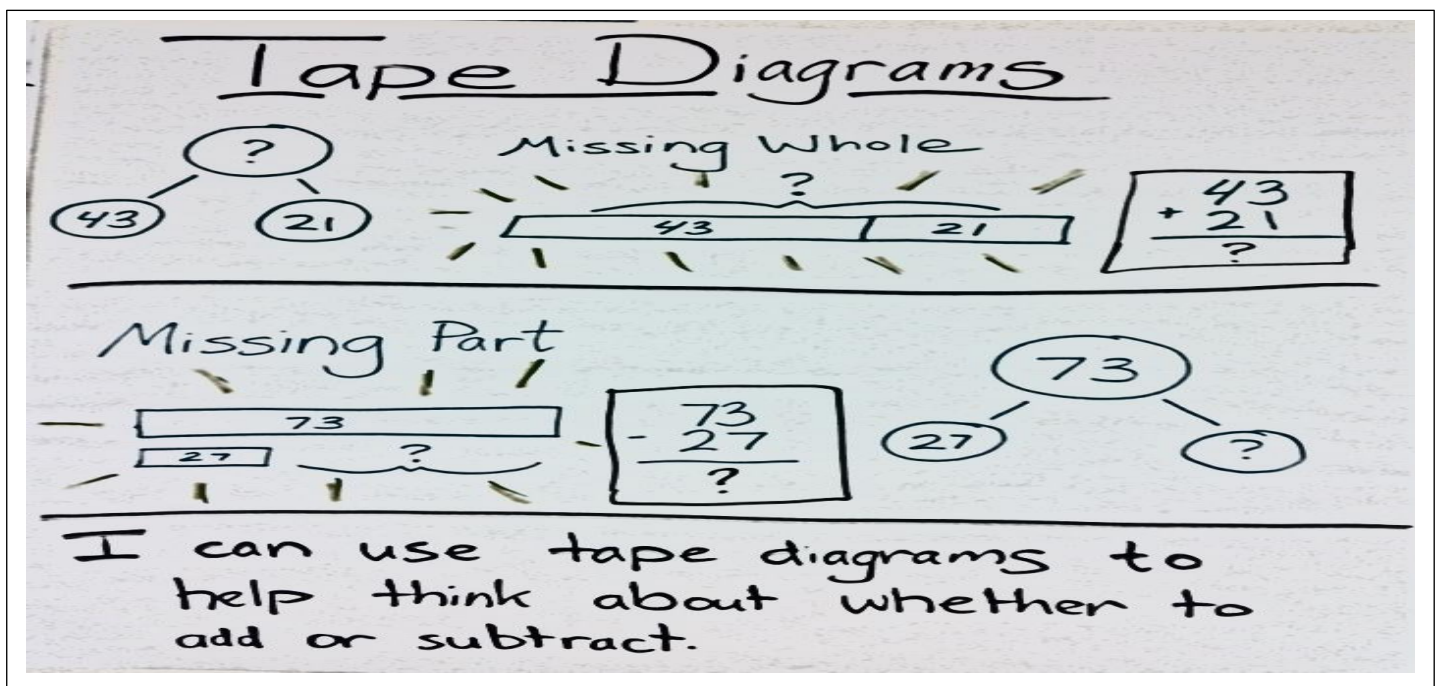 Tape Diagrams
?
43 21
Missing Whole
?
43 21
43
+ 21
?
Missing Part
73
27 ?
73
- 27
?
73
27 ?
I can use tape diagrams to
help think about whether to
add or subtract.